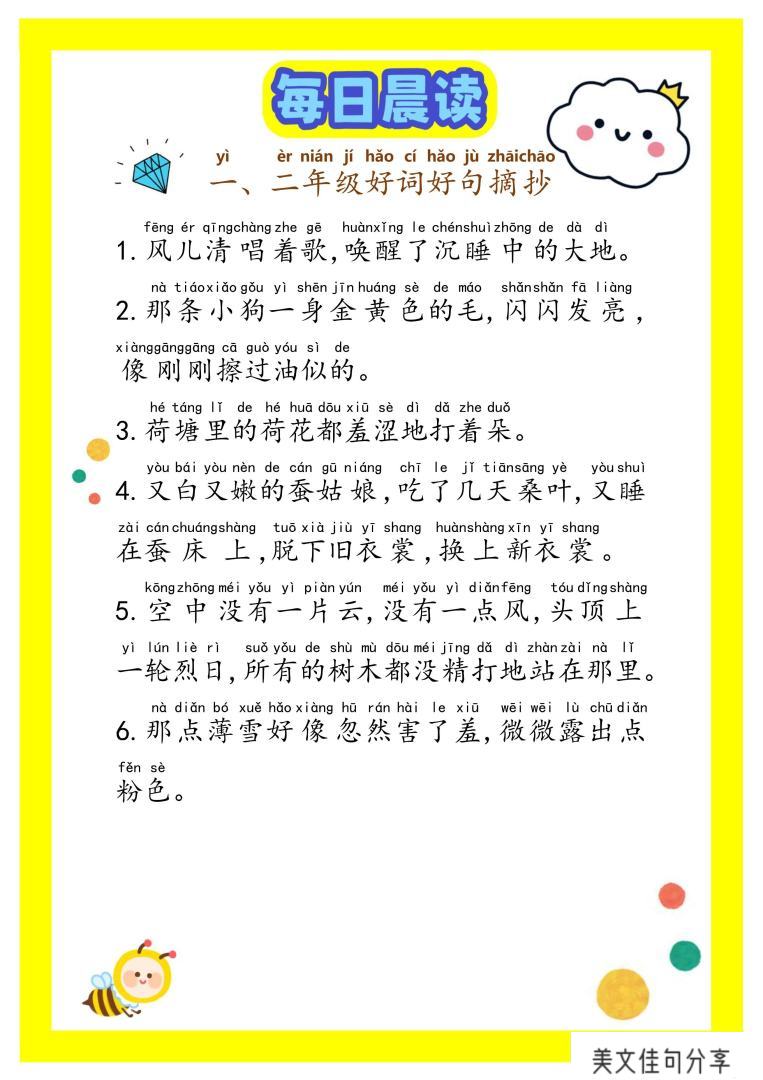 每日晨读
yì èr nián jí hǎo cí hǎo jù zhāichāo
一、二年级好词好句摘抄
fēng ér qīngchàng zhe gē huànxǐng le chénshuìzhōng de dà dì
1.风儿清唱着歌,唤醒了沉睡中的大地。
nà tiáoxiǎogǒu yì shēn jīn huáng sè de máo shǎnshǎn fā liàng
2.那条小狗一身金黄色的毛,闪闪发亮,
xiànggānggāng cā guò yóu sì de
像刚刚擦过油似的。
hé táng lǐ de hé huā dōu xiū sè dì dǎ zhe duǒ
3.荷塘里的荷花都羞涩地打着朵。
yòu bái yòu nèn de cán gū niáng chī le jǐ tiānsāng yè yòu shuì
4.又白又嫩的蚕姑娘,吃了几天桑叶,又睡
zài cán chuángshàng tuō xià jiù yī shang huànshàng xīn yī shang
在蚕床上,脱下旧衣裳,换上新衣裳。
kōngzhōng méi yǒu yì piàn yún méi yǒu yì diǎnfēng tóu dǐngshàng
5.空中没有一片云,没有一点风,头顶上
yì lún liè rì suǒ yǒu de shù mù dōu méi jīng dǎ dì zhàn zài nà lǐ
一轮烈日,所有的树木都没精打地站在那里。
nà diǎn bó xuě hǎo xiàng hū rán hài le xiū wēi wēi lù chū diǎn
6.那点薄雪好像忽然害了羞,微微露出点
fěn sè
粉色。
美文佳句分享